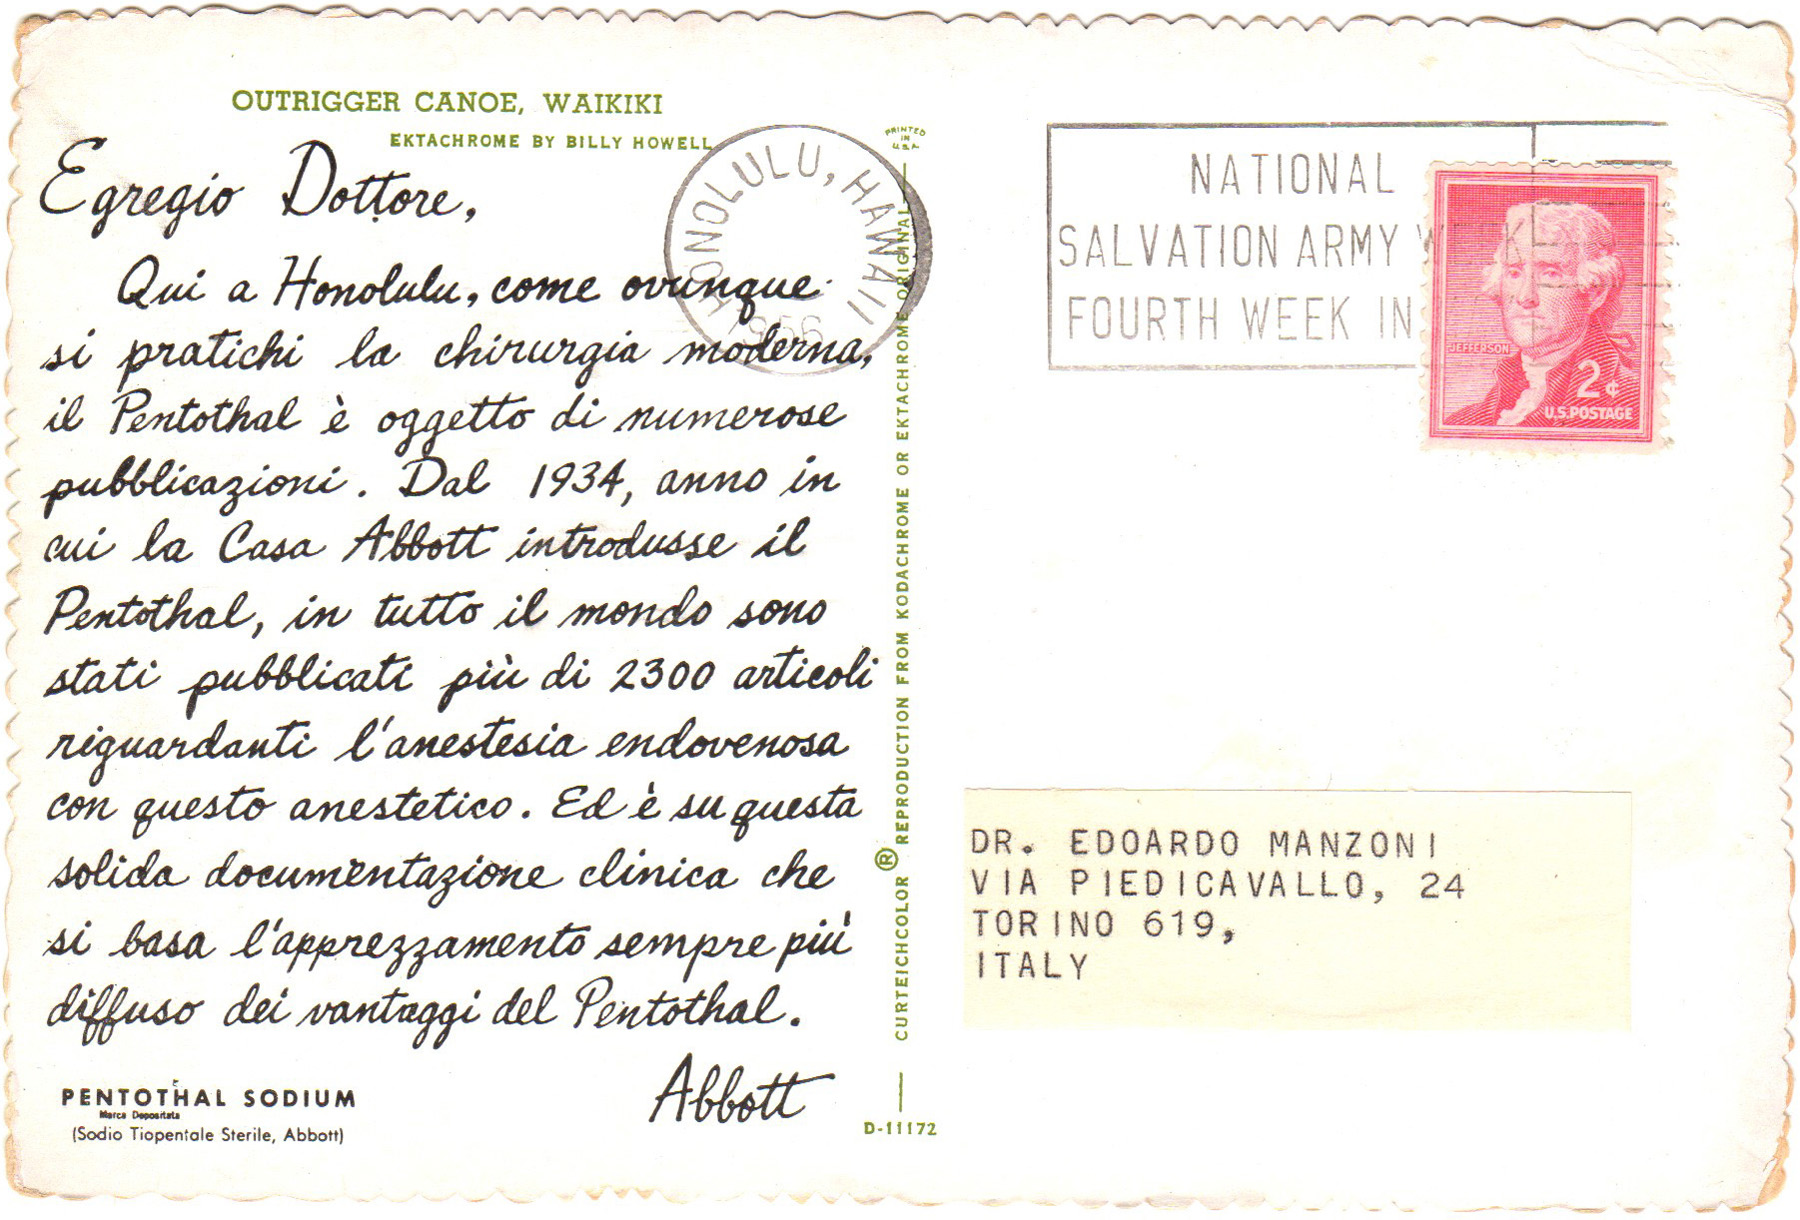 OUTRIGGER CANOE, WAIKIKI
EKTACHROME BY BILLY HOWELL
Egregio Dottore,
Qui a Honolulu, come ovunque
si pratichi la chirurgia moderna,
il Pentothal è oggetto di numerose
pubblicazioni. Dal 1934, anno in
cui la Casa Abbott introdusse il
Pentothal, in tutto il mondo sono
stati pubblicati più di 2300 articoli
riguardanti l'anestesia endovenosa
con questo anestetico. Ed è su questa
solida documentazione clinica che
si basa l'apprezzamento sempre più
diffuso dei vantaggi del Pentothal.
Abbott
PENTOTHAL SODIUM
Marca Depositata
(Sodio Tiopentale Sterile, Abbott)
D-11172
CURTEICHCOLOR ® REPRODUCTION FROM KODACHROME OR EKTACHROME ORIGINAL
PRINTED
IN
U.S.A.
HONOLULU, HAWAII
1956
NATIONAL
SALVATION ARMY WEEK
FOURTH WEEK IN
JEFFERSON
2¢
U.S. POSTAGE
DR. EDOARDO MANZONI
VIA PIEDICAVALLO, 24
TORINO 619,
ITALY